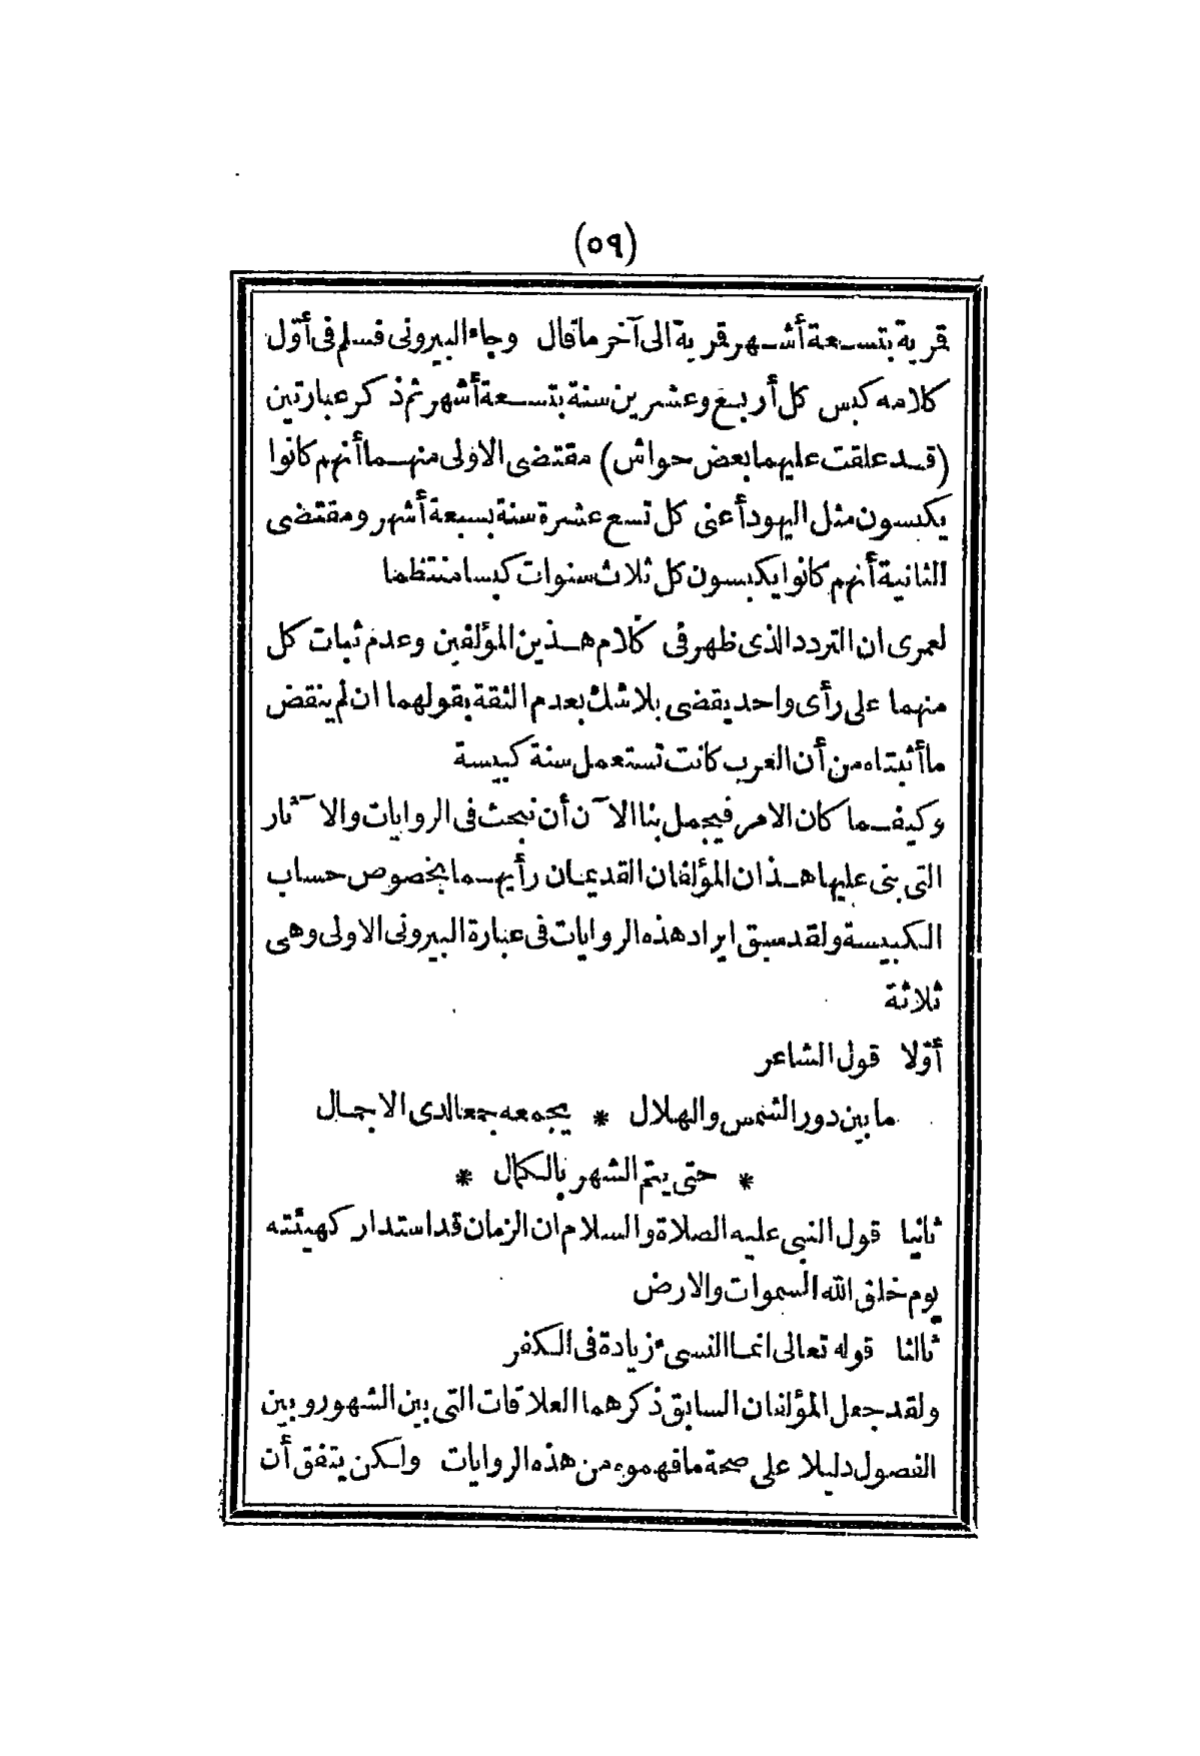 (٥٩)
قرية بتسعة أشهر قرية الى آخر ما قال وجاء البيرونى فسلم فى أوّل
كلامه كبس كل أربع وعشرين سنة بتسعة أشهر ثم ذكر عبارتين
(قد علقت عليهما بعض حواش) مقتضى الاولى منهما أنهم كانوا
يكبسون مثل اليهود أعنى كل تسع عشرة سنة بسبعة أشهر ومقتضى
الثانية أنهم كانوا يكبسون كل ثلاث سنوات كبسا منتظما
لعمرى ان التردد الذى ظهر فى كلام هذين المؤلفين وعدم ثبات كل
منهما على رأى واحد يقضى بلا شك بعدم الثقة بقولهما ان لم ينقض
ما أثبتاه من أن العرب كانت تستعمل سنة كبيسة
وكيفما كان الامر فيجمل بنا الآن أن نبحث فى الروايات والآثار
التى بنى عليها هذان المؤلفان القديمان رأيهما بخصوص حساب
الكبيسة ولقد سبق ايراد هذه الروايات فى عبارة البيرونى الاولى وهى
ثلاثة
أوّلا قول الشاعر
ما بين دور الشمس والهلال * يجمعه جمعا لدى الاجمال
* حتى يتم الشهر بالكمال *
ثانيا قول النبى عليه الصلاة والسلام ان الزمان قد استدار كهيئته
يوم خلق الله السموات والارض
ثالثا قوله تعالى انما النسىء زيادة فى الكفر
ولقد جعل المؤلفان السابق ذكرهما العلاقات التى بين الشهور وبين
الفصول دليلا على صحة ما فهموه من هذه الروايات ولكن يتفق أن